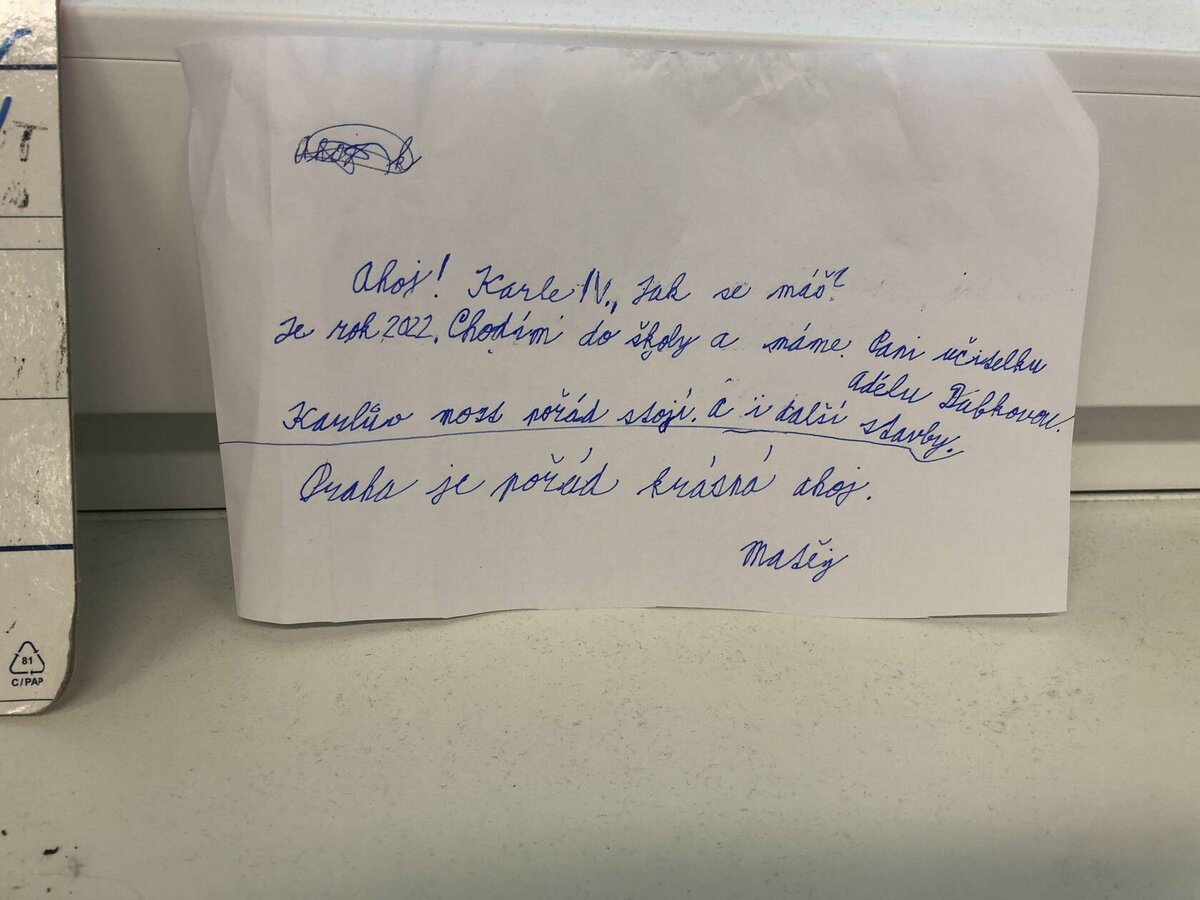 Ahoj k
Ahoj! Karle IV., Jak se máš?
Je rok 2022. Chodím do školy a máme. Pani učitelku
Adélu Dubkovou.
Karlův most pořád stojí. A i další stavby.
Praha je pořád krásná ahoj.
Matěj
81
C/PAP